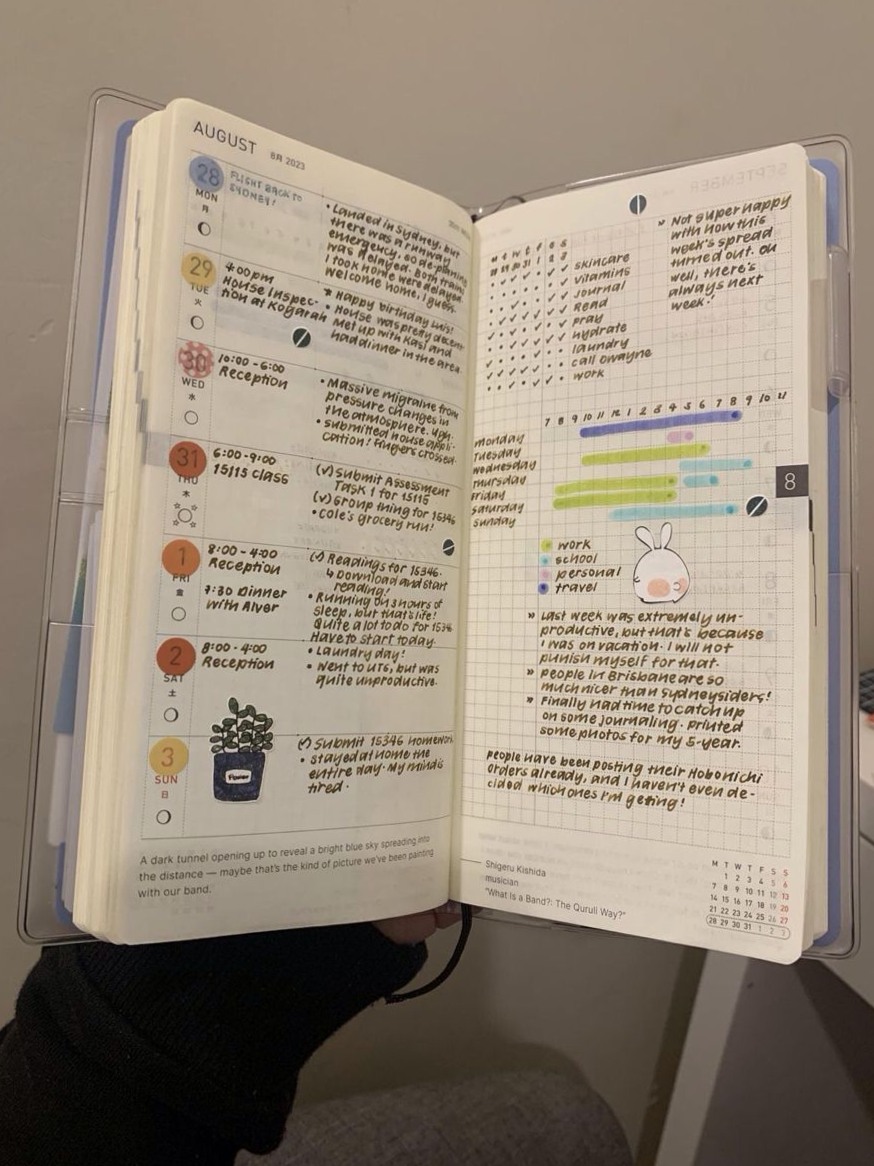 AUGUST 8月 2023
28
MON
月
FLIGHT BACK TO
SYDNEY!
• Landed in Sydney, but
there was a runway
emergency, so de-planing
was delayed. Both trains
I took home were delayed.
Welcome home, I guess.
29
TUE
火
4:00pm
House Inspec-
tion at Kogarah
* Happy birthday Luis!
• House was pretty decent
Met up with Kasi and
had dinner in the area.
30
WED
水
10:00 - 6:00
Reception
• Massive migraine from
pressure changes in
the atmosphere. Ugh.
• Submitted house appli-
cation! Fingers crossed.
31
THU
木
6:00 - 9:00
15115 class
(✓) Submit Assessment
Task 1 for 15115
(✓) Group thing for 15346
• Cole's grocery run!
1
FRI
金
8:00 - 4:00
Reception
7:30 Dinner
with Alver
(✓) Readings for 15346.
↳ Download and start
reading!
• Running on 3 hours of
sleep, but that's life!
Quite a lot to do for 15346
Have to start today.
2
SAT
土
8:00 - 4:00
Reception
• Laundry day!
• Went to UTS, but was
quite unproductive.
3
SUN
日
Flower
(✓) Submit 15346 homework
• Stayed at home the
entire day. My mind is
tired.
A dark tunnel opening up to reveal a bright blue sky spreading into
the distance — maybe that's the kind of picture we've been painting
with our band.
M T W T F S S
28 29 30 31 1 2 3
skincare
vitamins
journal
Read
pray
hydrate
laundry
call Dwayne
work
» Not super happy
with how this
week's spread
turned out. Oh
well, there's
always next
week!
7 8 9 10 11 12 1 2 3 4 5 6 7 8 9 10 11
monday
Tuesday
wednesday
Thursday
Friday
Saturday
Sunday
8
work
school
personal
travel
» Last week was extremely un-
productive, but that's because
I was on vacation. I will not
punish myself for that.
» People in Brisbane are so
much nicer than Sydneysiders!
» Finally had time to catch up
on some journaling. Printed
some photos for my 5-year.
People have been posting their Hobonichi
orders already, and I haven't even de-
cided which ones I'm getting!
Shigeru Kishida
musician
"What Is a Band?: The Quruli Way?"
M T W T F S S
1 2 3 4 5 6
7 8 9 10 11 12 13
14 15 16 17 18 19 20
21 22 23 24 25 26 27
28 29 30 31 1 2 3